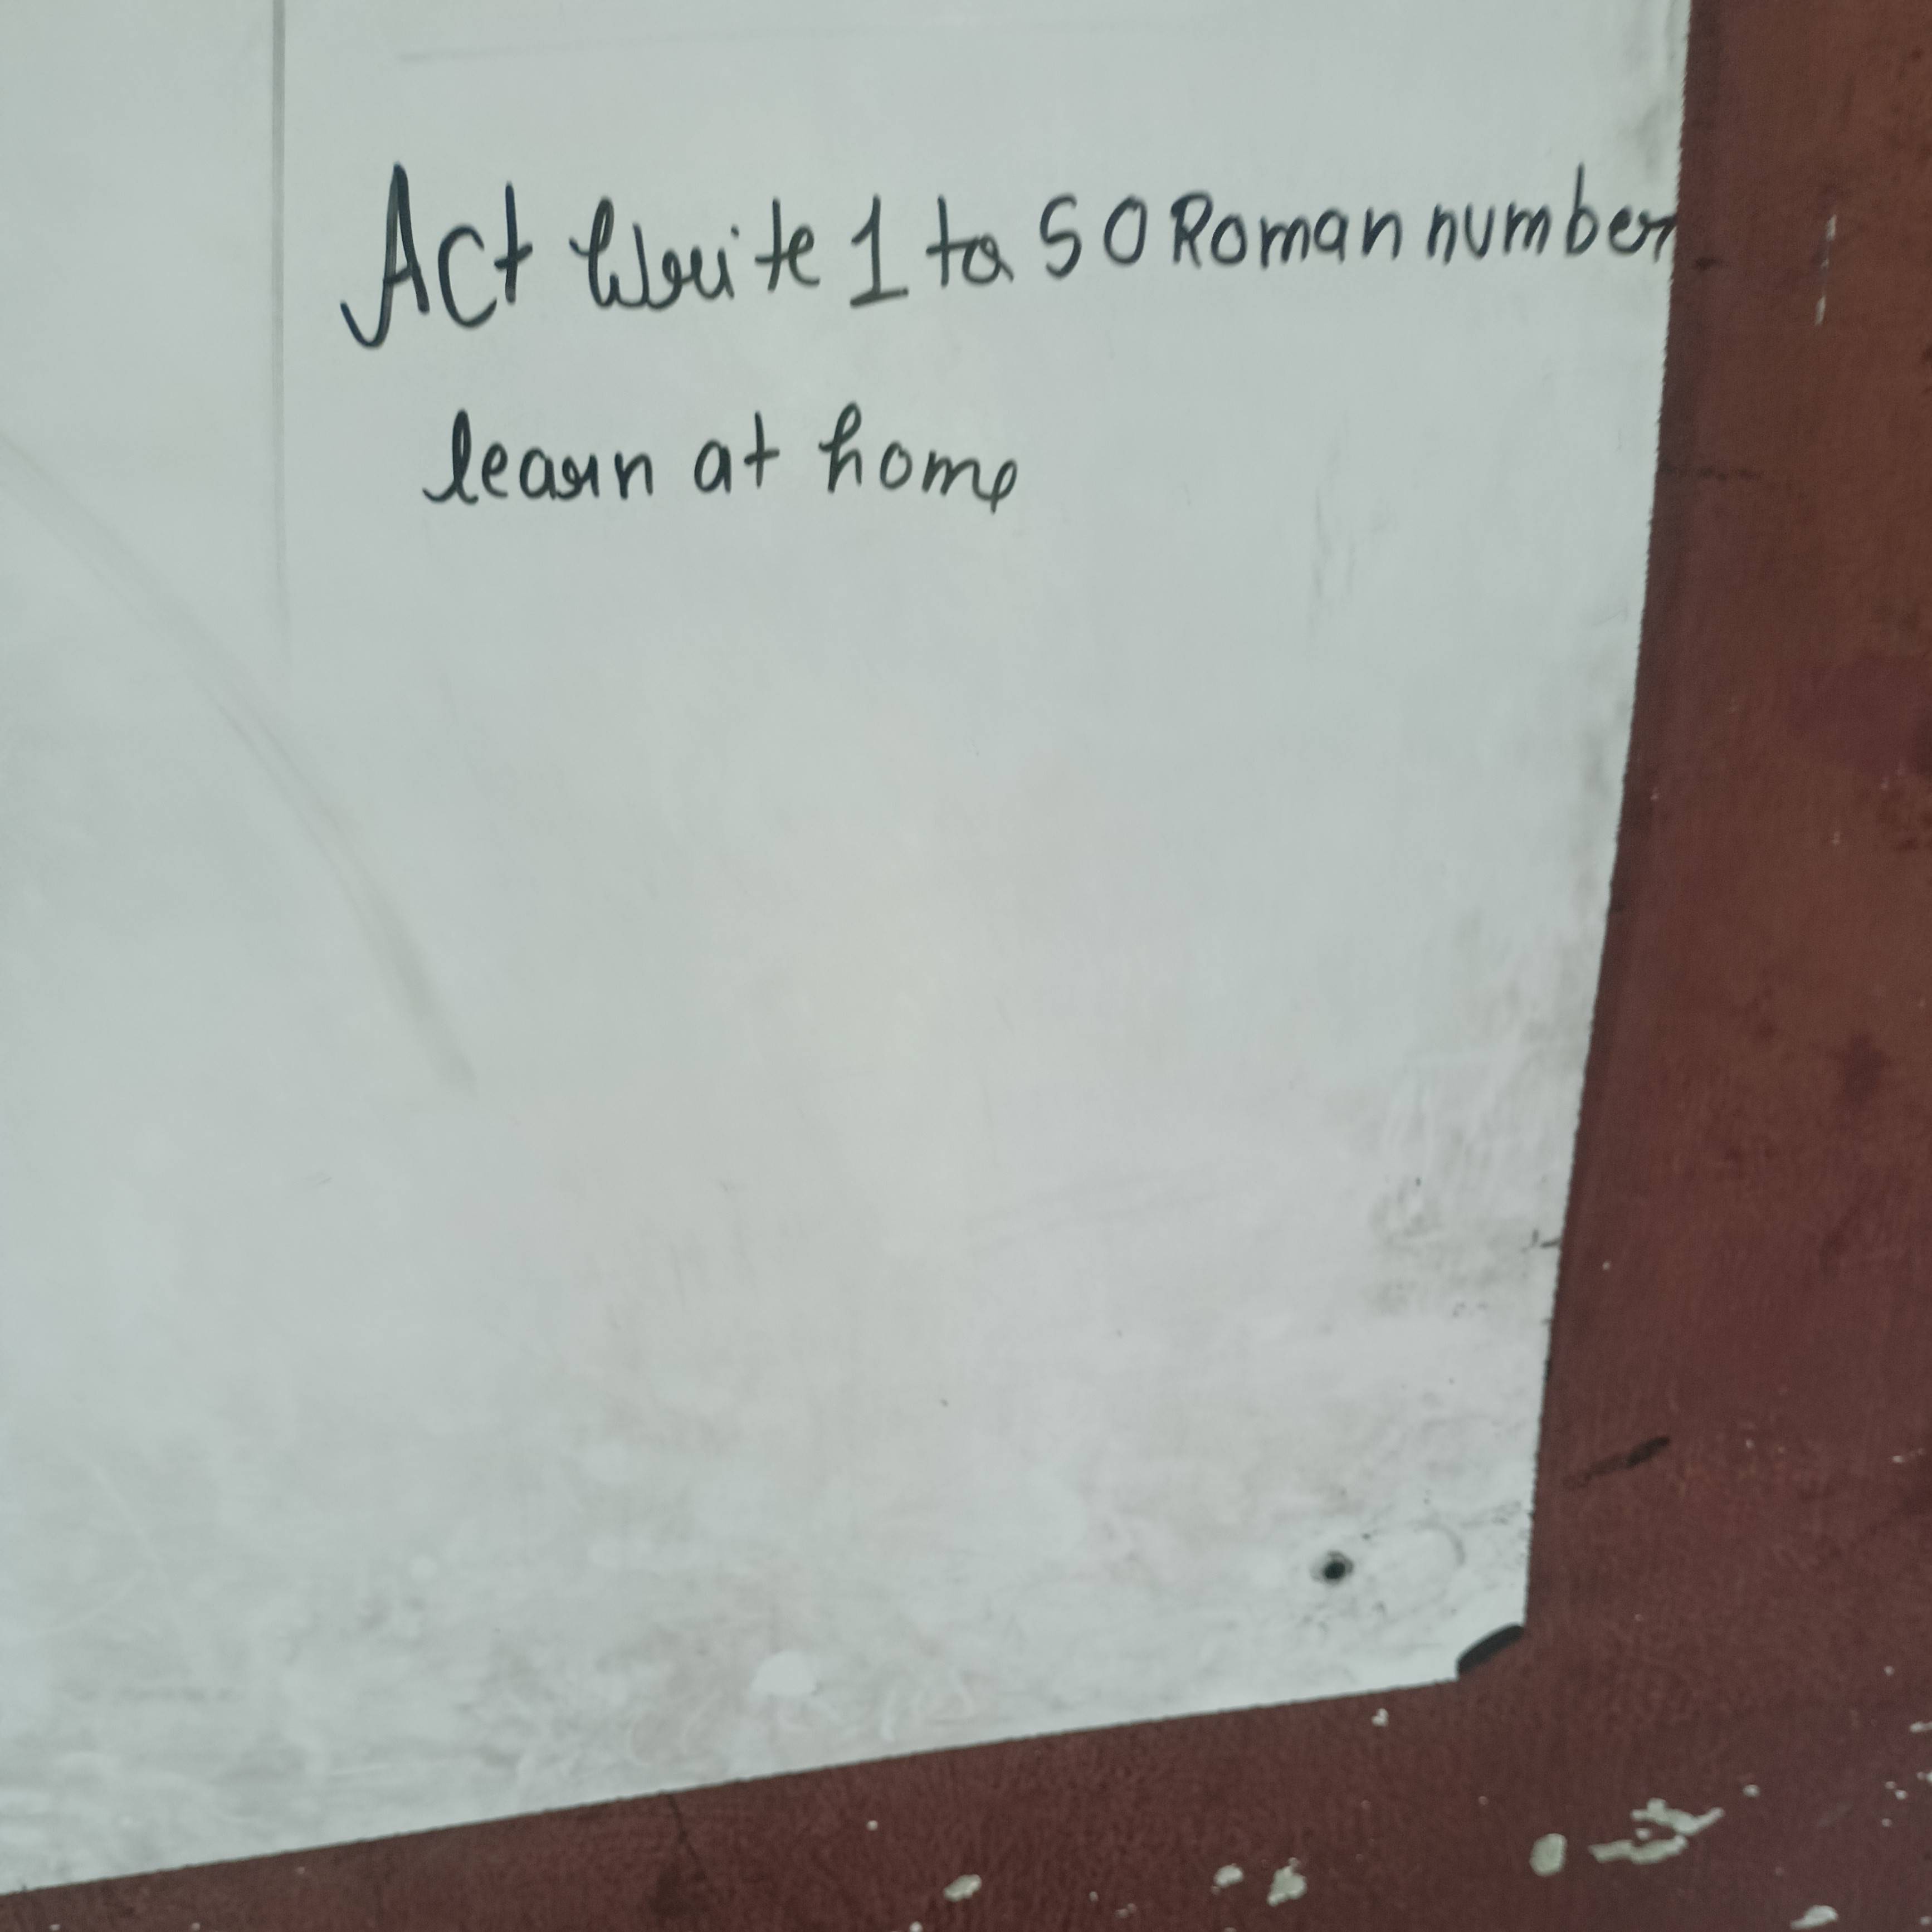 Act Write 1 to 50 Roman number
learn at home